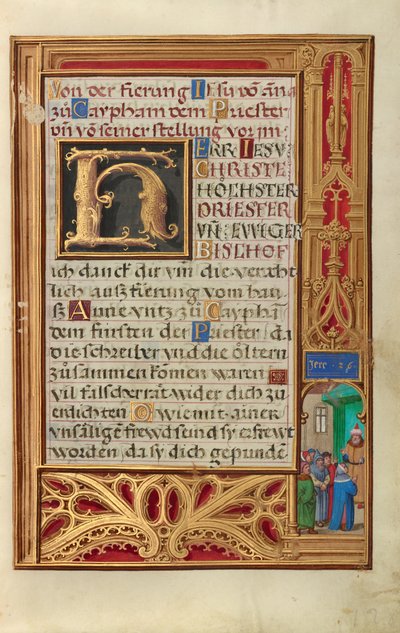 Von der fierung Iesu võ ãna
zů Caypham dem Priester
vñ võ seiner stellung vor im.
HERR IESV
CHRISTE
HÖCHSTER
PRIESTER
VÑ EWIGER
BISCHOF
ich danck dir vm die veracht
lich auß fierung vom hau
ß Anne vntz zů Cayphã
dem fürsten der Priester da
die schreiber vnd die öltern
zů samen kömen waren
vil falscher rät wider dich zů
erdichten O wie mit ainer
vnsäligen frewd seind sy erfrewt
worden da sy dich gepunde
Jere · 26 ·